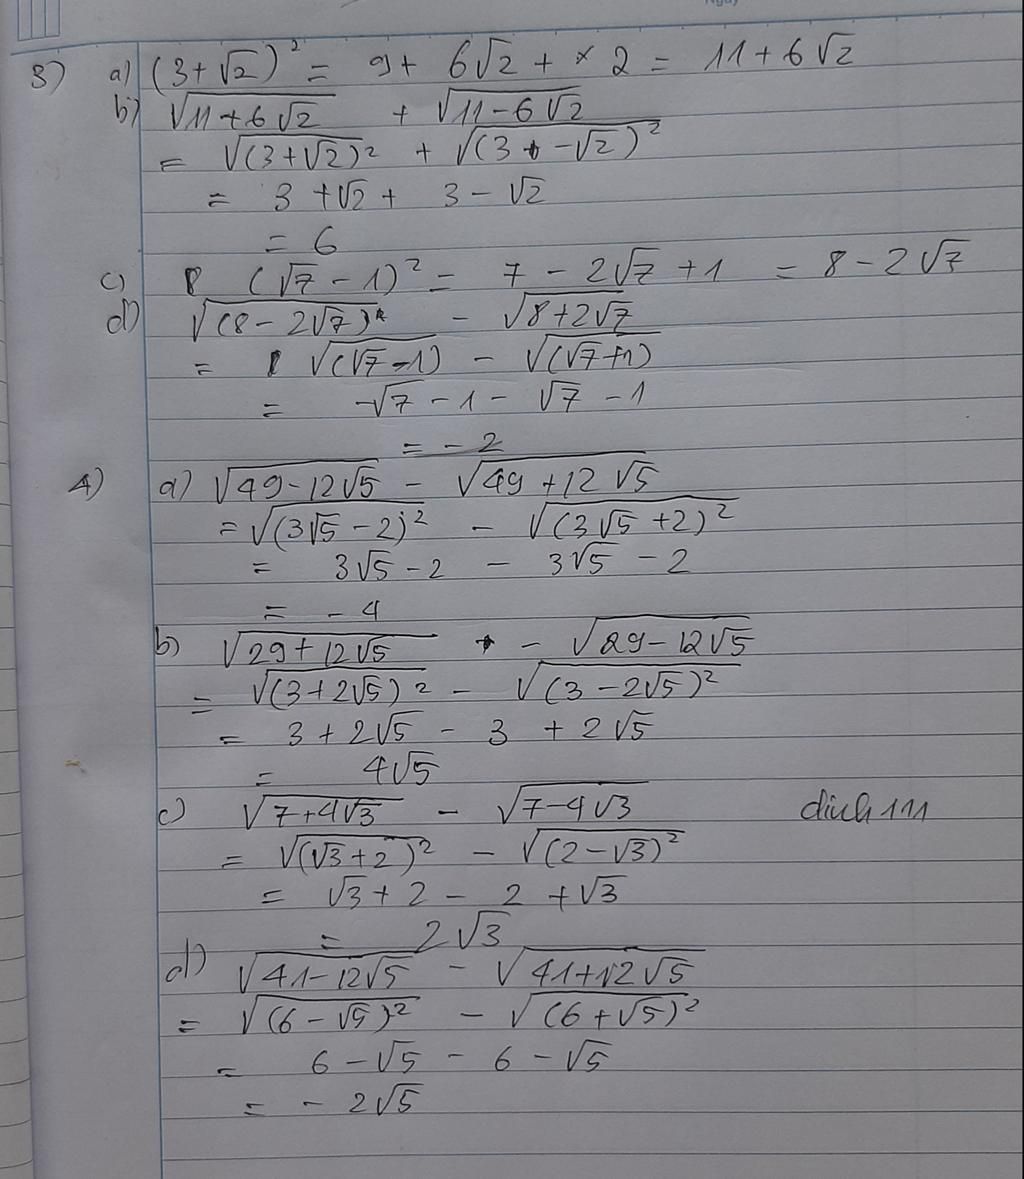 Ngày
3) a) (3+√2)² = 9+ 6√2 + × 2 = 11+6√2
b) √11+6√2 + √11-6√2
= √(3+√2)² + √(3 -√2)²
= 3 +√2 + 3 - √2
= 6
c) (√7 - 1)² = 7 - 2√7 +1 = 8 - 2√7
d) √(8- 2√7) - √8+2√7
= √(√7-1) - √(√7+1)
= -√7 - 1 - √7 - 1
= - 2
4) a) √49-12√5 - √49+12√5
= √(3√5 - 2)² - √(3√5 +2)²
= 3√5 - 2 - 3√5 - 2
= - 4
b) √29+12√5 - √29-12√5
= √(3+2√5)² - √(3-2√5)²
= 3 + 2√5 - 3 + 2√5
= 4√5
c) √7+4√3 - √7-4√3
= √(√3+2)² - √(2-√3)²
= √3 + 2 - 2 + √3
= 2√3
d) √41-12√5 - √41+12√5
= √(6-√5)² - √(6+√5)²
= 6 - √5 - 6 - √5
= - 2√5